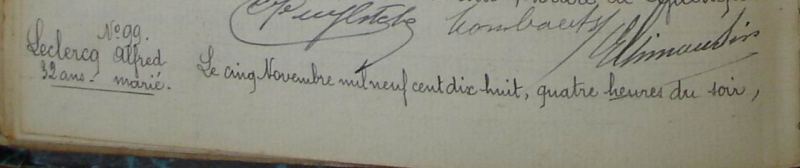 Lombaerts
N° 99.
Leclercq Alfred
32 ans - marié.
Le cinq Novembre mil neuf cent dix huit, quatre heures du soir,